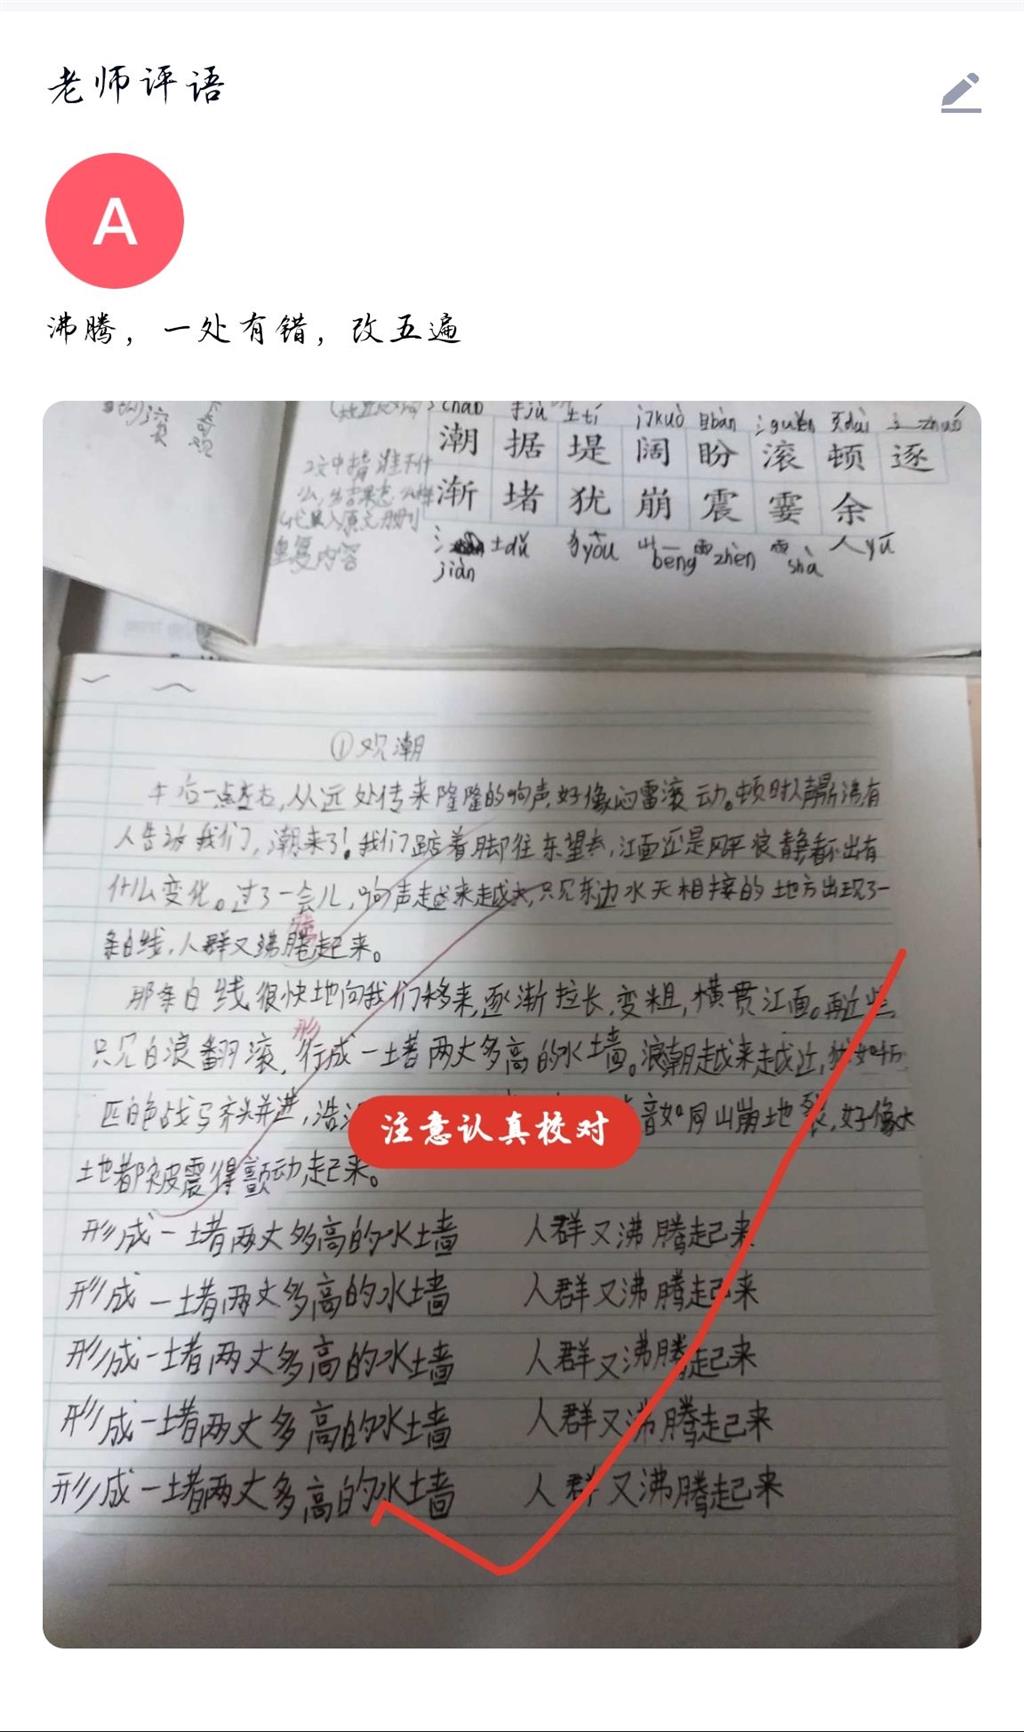 老师评语
A
沸腾，一处有错，改五遍
chao jù tí kuò pàn gǔn dùn zhú
潮 据 堤 阔 盼 滚 顿 逐
渐 堵 犹 崩 震 霎 余
jiàn dǔ yóu bēng zhèn shà yú
重复内容
①观潮
午后一点左右,从远处传来隆隆的响声,好像闷雷滚动。顿时人声鼎沸,有
人告诉我们,潮来了!我们踮着脚往东望去,江面还是风平浪静,看不出有
什么变化。过了一会儿,响声越来越大,只见东边水天相接的地方出现了一
腾
条白线,人群又沸腾起来。
那条白线很快地向我们移来,逐渐拉长,变粗,横贯江面。再近些,
形
只见白浪翻滚,行成一堵两丈多高的水墙。浪潮越来越近,犹如千万
匹白色战马齐头并进,浩 音如同山崩地裂,好像大
注意认真校对
土地都被震得颤动起来。
形成一堵两丈多高的水墙 人群又沸腾起来
形成一堵两丈多高的水墙 人群又沸腾起来
形成一堵两丈多高的水墙 人群又沸腾起来
形成一堵两丈多高的水墙 人群又沸腾起来
形成一堵两丈多高的水墙 人群又沸腾起来